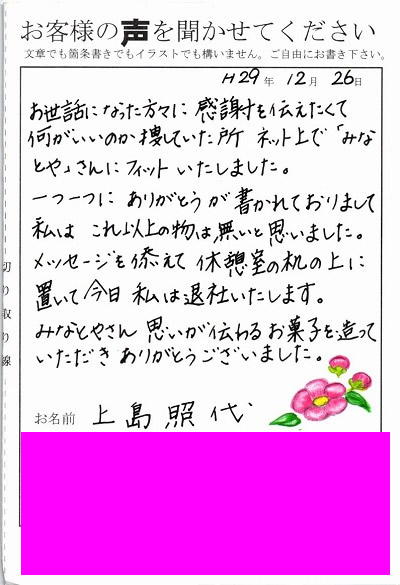 お客様の声を聞かせてください
文章でも箇条書きでもイラストでも構いません。ご自由にお書き下さい。
H29年 12月 26日
お世話になった方々に 感謝を伝えたくて
何がいいのか捜していた所 ネット上で「みな
とや」さんにフィットいたしました。
一つ一つに ありがとうが 書かれておりまして
私は これ以上の物は無いと思いました。
メッセージを添えて 休憩室の机の上に
置いて今日 私は退社いたします。
みなとやさん 思いが伝わるお菓子を造って
いただき ありがとうございました。
お名前 上島照代
切り取り線